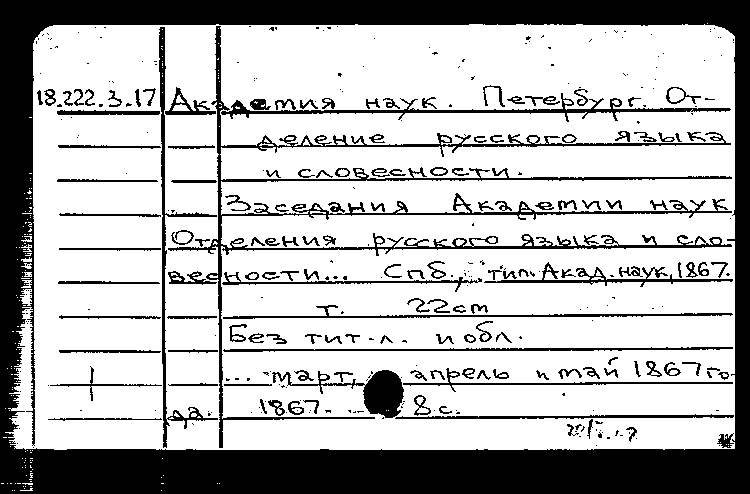 18.222.3.17 Академия наук. Петербург. От-
деление русского языка
и словесности.
Заседания Академии наук
Отделения русского языка и сло-
весности... Спб., тип. Акад. наук, 1867.
т. 22cm
Без тит. л. и обл.
... март, апрель и май 1867 го-
да. 1867. 8 с.